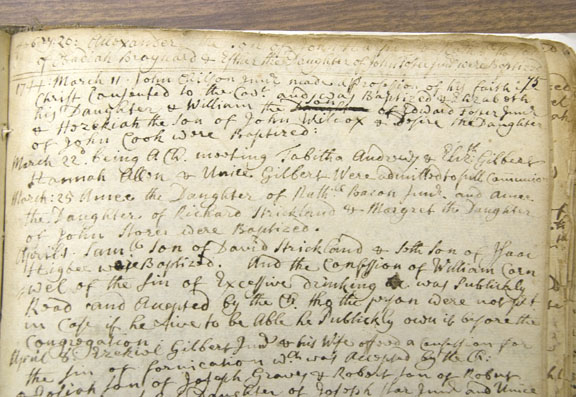 20: Alexander the son of
of Obadiah Braynard & Esther the Daughter of John were Baptized
75
1744. March 11. John Chilson Junr made a profession of his faith in
Christ Consented to the Covt. and was Baptized & Elizabeth
his Daughter & William the son of Edward Foster Junr
& Hezekiah the Son of John Wilcox & Desire the Daughter
of John Cook were Baptized:
March 22. being a Ch. meeting Tabitha Andrews & Elizth Gilbert
Hannah Allen & Unice Gilbert were admitted to full Communion
March: 25 Amee the Daughter of Nathll Bacon Junr. and Amee
the Daughter of Richard Strickland & Margret the Daughter
of John Stores were Baptized.
April 1. Samll Son of David Strickland & Seth Son of Isaac
Higbee were Baptized. And the Confession of William Corn
wel of the Sin of Excessive drinking was Publickly
Read and Accepted by the Ch tho the person were not pst
in Case if he live to be Able he Publickly own it before the
Congregation
April 8 Ezekiel Gilbert Junr & his Wife offered a confession for
the sin of fornication wch was Accepted by the Ch:
& Josiah Son of Joseph Graves & Robert Son of Robert
Daughter of Joseph Star Junr and Unice